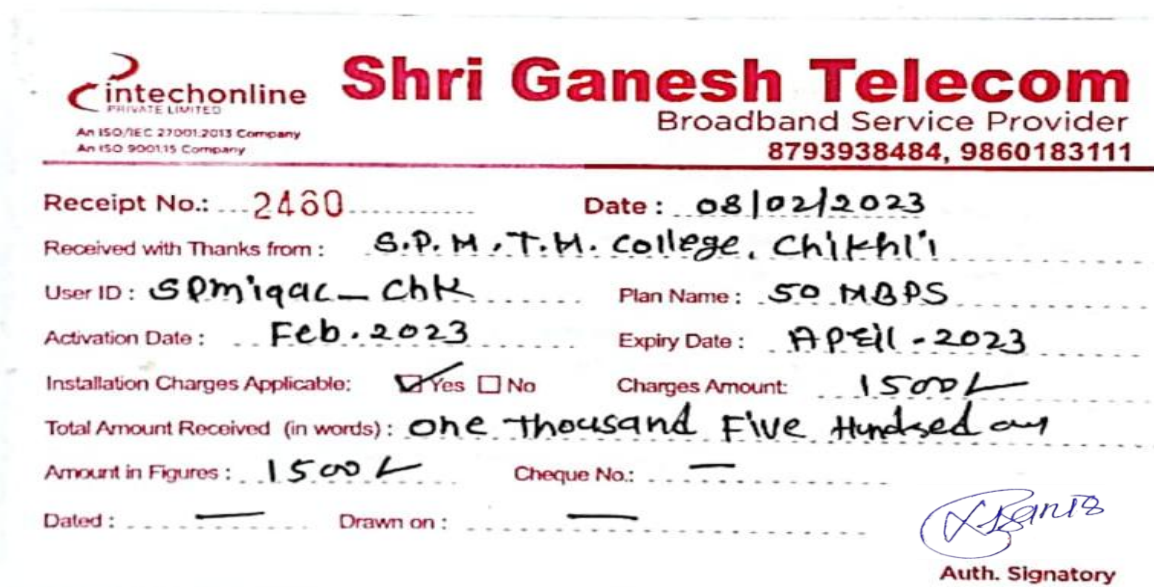 intechonline
PRIVATE LIMITED
An ISO/IEC 27001:2013 Company
An ISO 9001:15 Company
Shri Ganesh Telecom
Broadband Service Provider
8793938484, 9860183111
Receipt No.: 2460 Date : 08/02/2023
Received with Thanks from : S.P.M.T.M. college, Chikhli
User ID : Spmiqac_Chk Plan Name : 50 MBPS
Activation Date : Feb.2023 Expiry Date : April-2023
Installation Charges Applicable: Yes No Charges Amount: 1500/-
Total Amount Received (in words) : One thousand Five Hundred
Amount in Figures : 1500/- Cheque No.: —
Dated : — Drawn on : —
Auth. Signatory